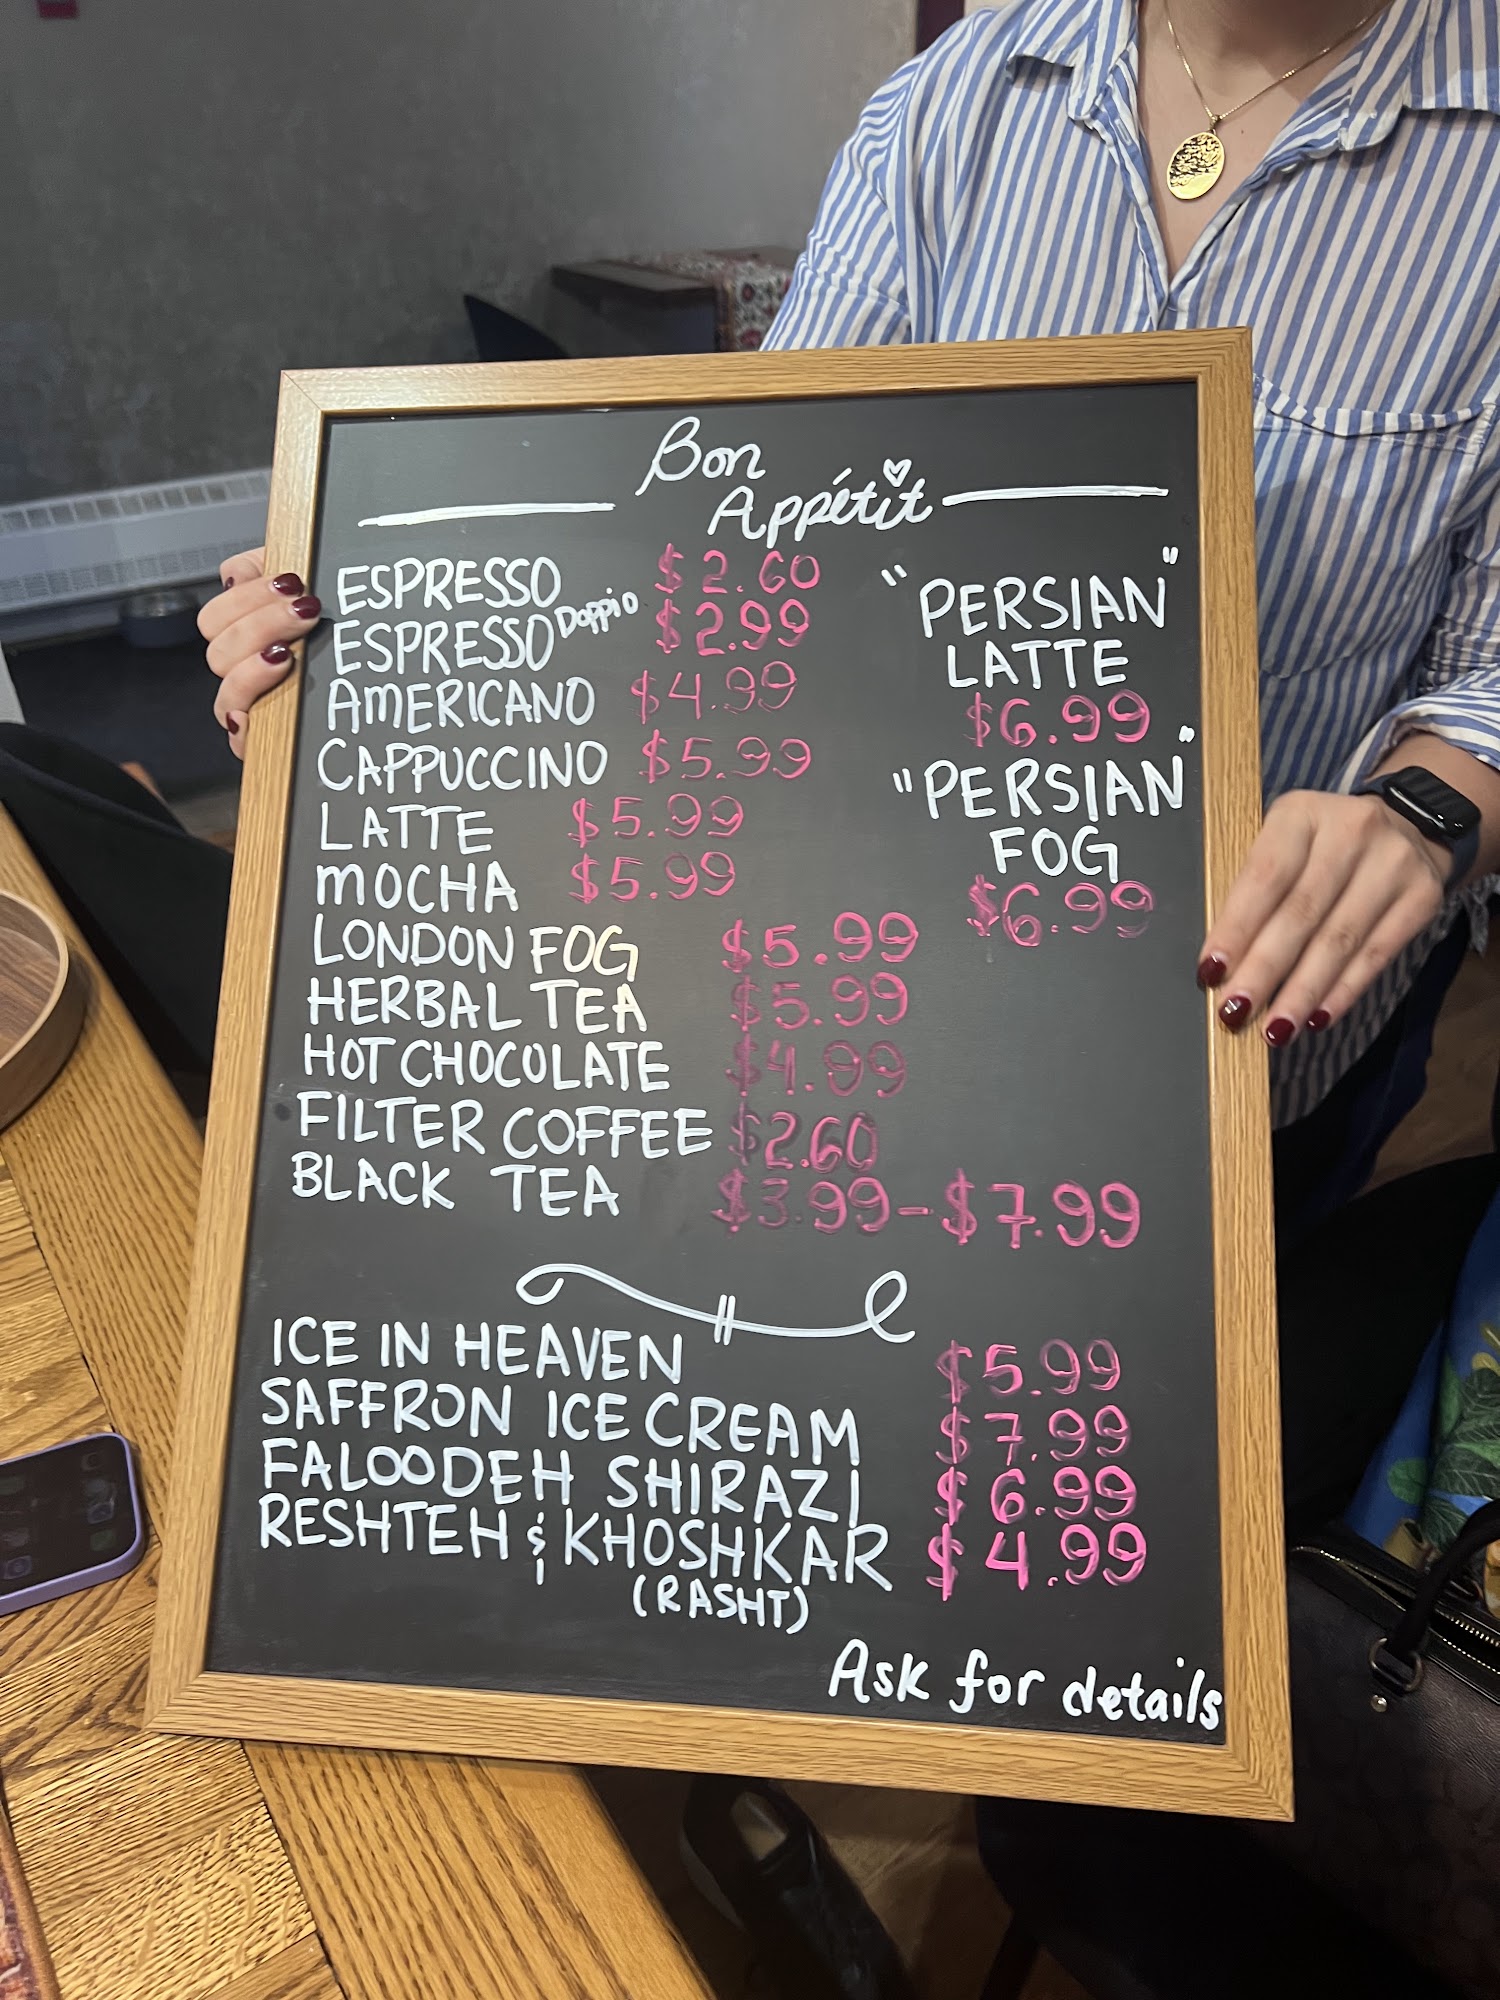 Bon
Appétit
ESPRESSO $2.60
ESPRESSO Doppio $2.99
AMERICANO $4.99
CAPPUCCINO $5.99
LATTE $5.99
MOCHA $5.99
LONDON FOG $5.99
HERBAL TEA $5.99
HOT CHOCOLATE $4.99
FILTER COFFEE $2.60
BLACK TEA $3.99-$7.99
"PERSIAN"
LATTE
$6.99
"PERSIAN"
FOG
$6.99
ICE IN HEAVEN $5.99
SAFFRON ICE CREAM $7.99
FALOODEH SHIRAZI $6.99
RESHTEH & KHOSHKAR $4.99
(RASHT)
Ask for details